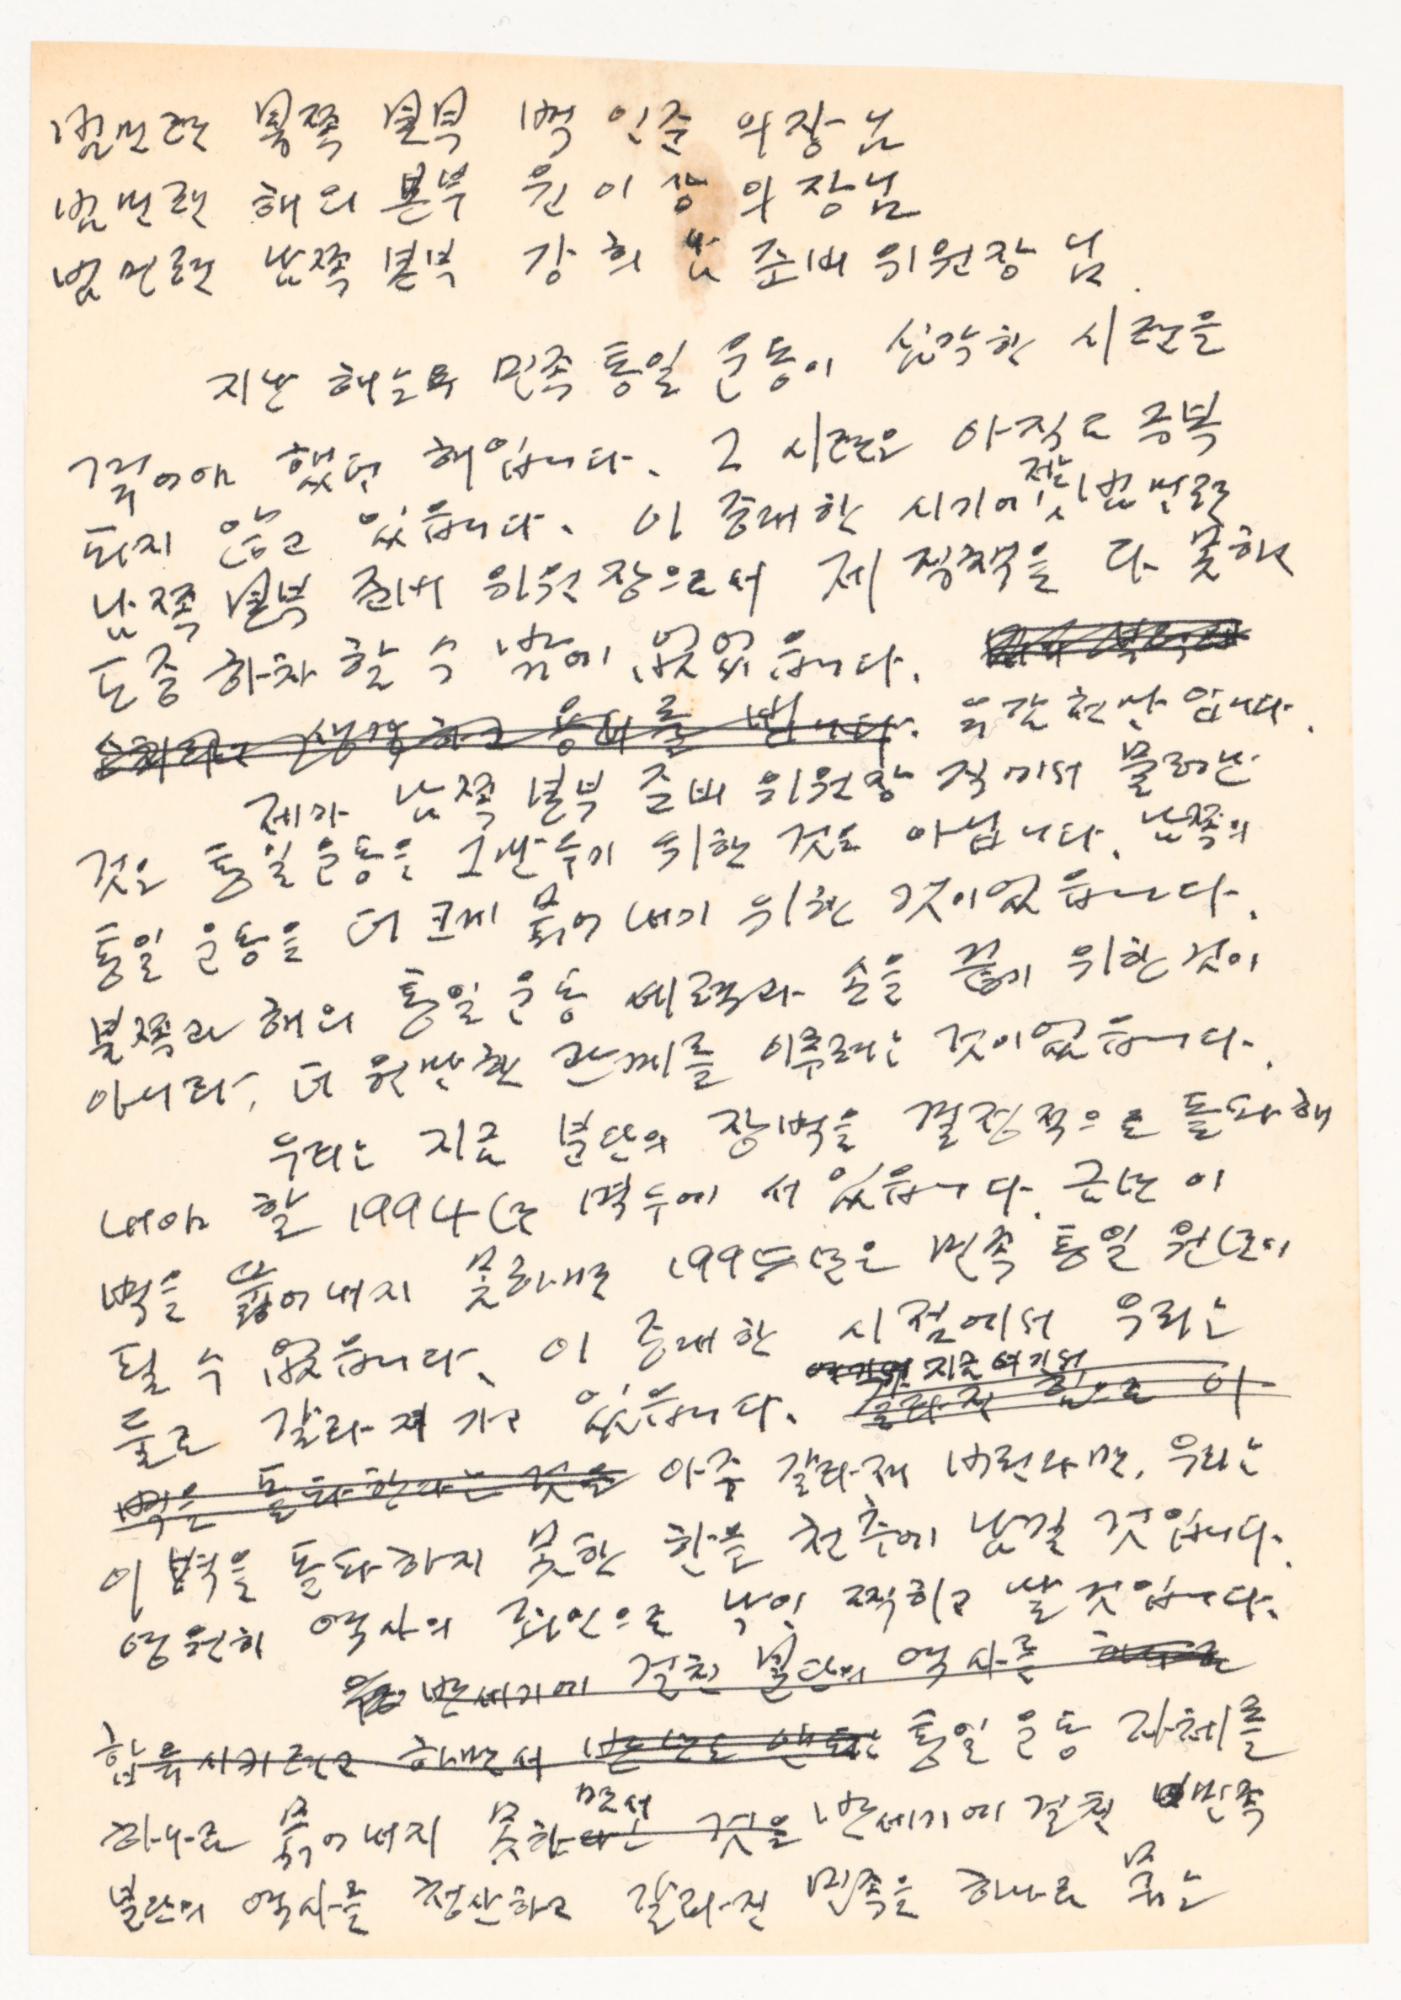 범민련 북쪽 본부 백인준 의장님
범민련 해외 본부 윤이상 의장님
범민련 남쪽 본부 강희남 준비위원장님.
지난 해는 민족 통일 운동이 심각한 시련을
겪어야 했던 해입니다. 그 시련은 아직도 극복
되지 않고 있습니다. 이 중대한 시기에 저는 범민련
남쪽 본부 준비 위원장으로서 제 직책을 다 못하고
도중 하차 할 수 밖에 없었습니다.
생각하고 용서를 빕니다. 유감천만입니다.
제가 남쪽 본부 준비 위원장 직에서 물러난
것은 통일운동을 그만두기 위한 것은 아닙니다. 남쪽의
통일 운동을 더 크게 묶어 내기 위한 것이었습니다.
북쪽과 해외 통일 운동 세력과 손을 끊기 위한 것이
아니라, 더 원만한 관계를 이루려는 것이었습니다.
우리는 지금 분단의 장벽을 결정적으로 돌파해
내야 할 1994년 벽두에 서 있습니다. 금년 이
벽을 뚫어 내지 못하면 1995년은 민족 통일 원년이
될 수 없습니다. 이 중대한 시점에서 우리는
여기서 지금 여기서
둘로 갈라져 가고 있습니다. 힘으로 이
벽은 돌파한다는 것을 아주 갈라져 버린다면, 우리는
이 벽을 돌파하지 못한 한을 천추에 남길 것입니다.
영원히 역사의 죄인으로 낙인 찍히고 말 것입니다.
반세기에 걸친 분단의 역사를
합류시키려고 하면서 통일 운동 자체를
면서
하나로 묶어 내지 못한다는 것을 반세기에 걸친 민족
분단의 역사를 청산하고 갈라진 민족을 하나로 묶는